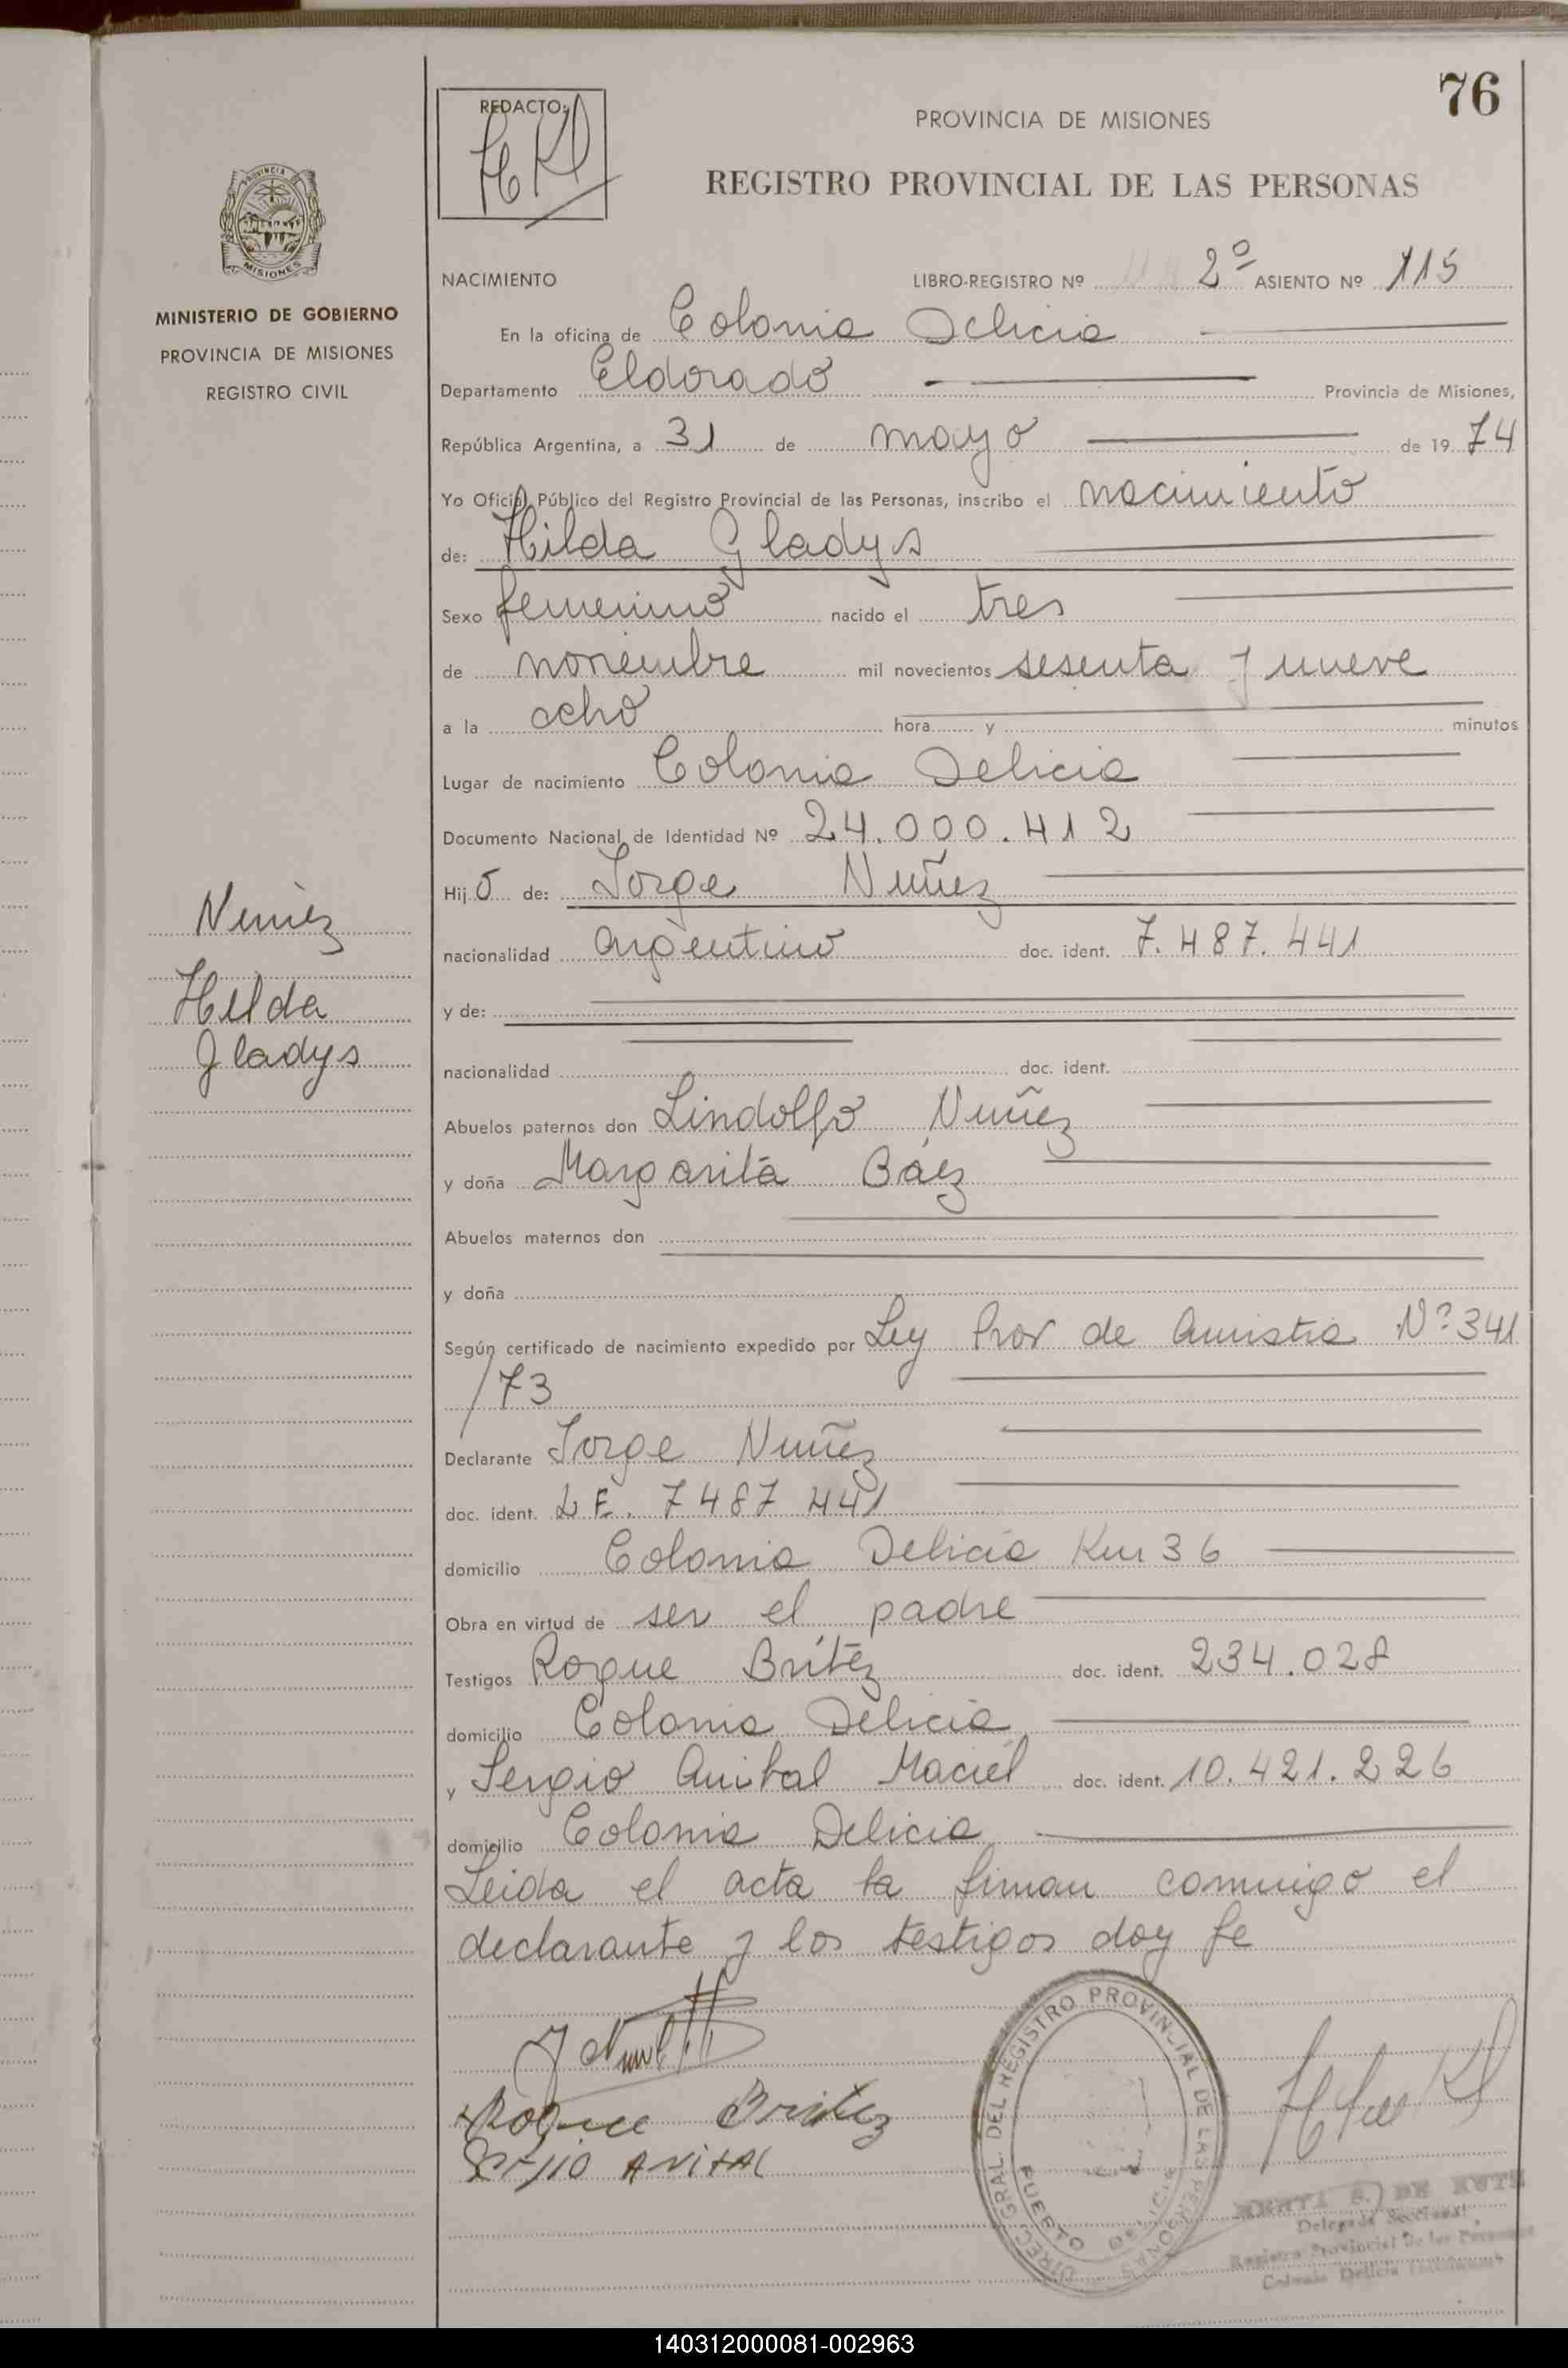 76
REDACTO:
PROVINCIA DE MISIONES
REGISTRO PROVINCIAL DE LAS PERSONAS
PROVINCIA DE
MISIONES
MINISTERIO DE GOBIERNO
PROVINCIA DE MISIONES
REGISTRO CIVIL
NACIMIENTO LIBRO-REGISTRO Nº 2º ASIENTO Nº 115
En la oficina de Colonia Delicia
Departamento Eldorado Provincia de Misiones,
República Argentina, a 31 de mayo de 19 74
Yo Oficial Público del Registro Provincial de las Personas, inscribo el nacimiento
de: Hilda Gladys
Sexo femenino nacido el tres
de noviembre mil novecientos sesenta y nueve
a la ocho hora y minutos
Lugar de nacimiento Colonia Delicia
Documento Nacional de Identidad Nº 24.000.412
Hij o de: Jorge Nuñez
nacionalidad argentino doc. ident. 7.487.441
y de:
nacionalidad doc. ident.
Abuelos paternos don Lindolfo Nuñez
y doña Margarita Báez
Abuelos maternos don
y doña
Según certificado de nacimiento expedido por Ley Prov de Amistia Nº 341
/73
Declarante Jorge Nuñez
doc. ident. L E. 7487 441
domicilio Colonia Delicia Km 36
Obra en virtud de ser el padre
Testigos Roque Britez doc. ident. 234.028
domicilio Colonia Delicia
y Sergio Anibal Maciel doc. ident. 10.421.226
domicilio Colonia Delicia
Leida el acta la firman conmigo el
declarante y los testigos doy fe
Nuñez
Hilda
Gladys
Roque Britez
DIREC. GRAL. DEL REGISTRO PROVINCIAL DE LAS PERSONAS
PUERTO DELICIA
Delegada Seccional
Registro Provincial De las Personas
Colonia Delicia
140312000081-002963